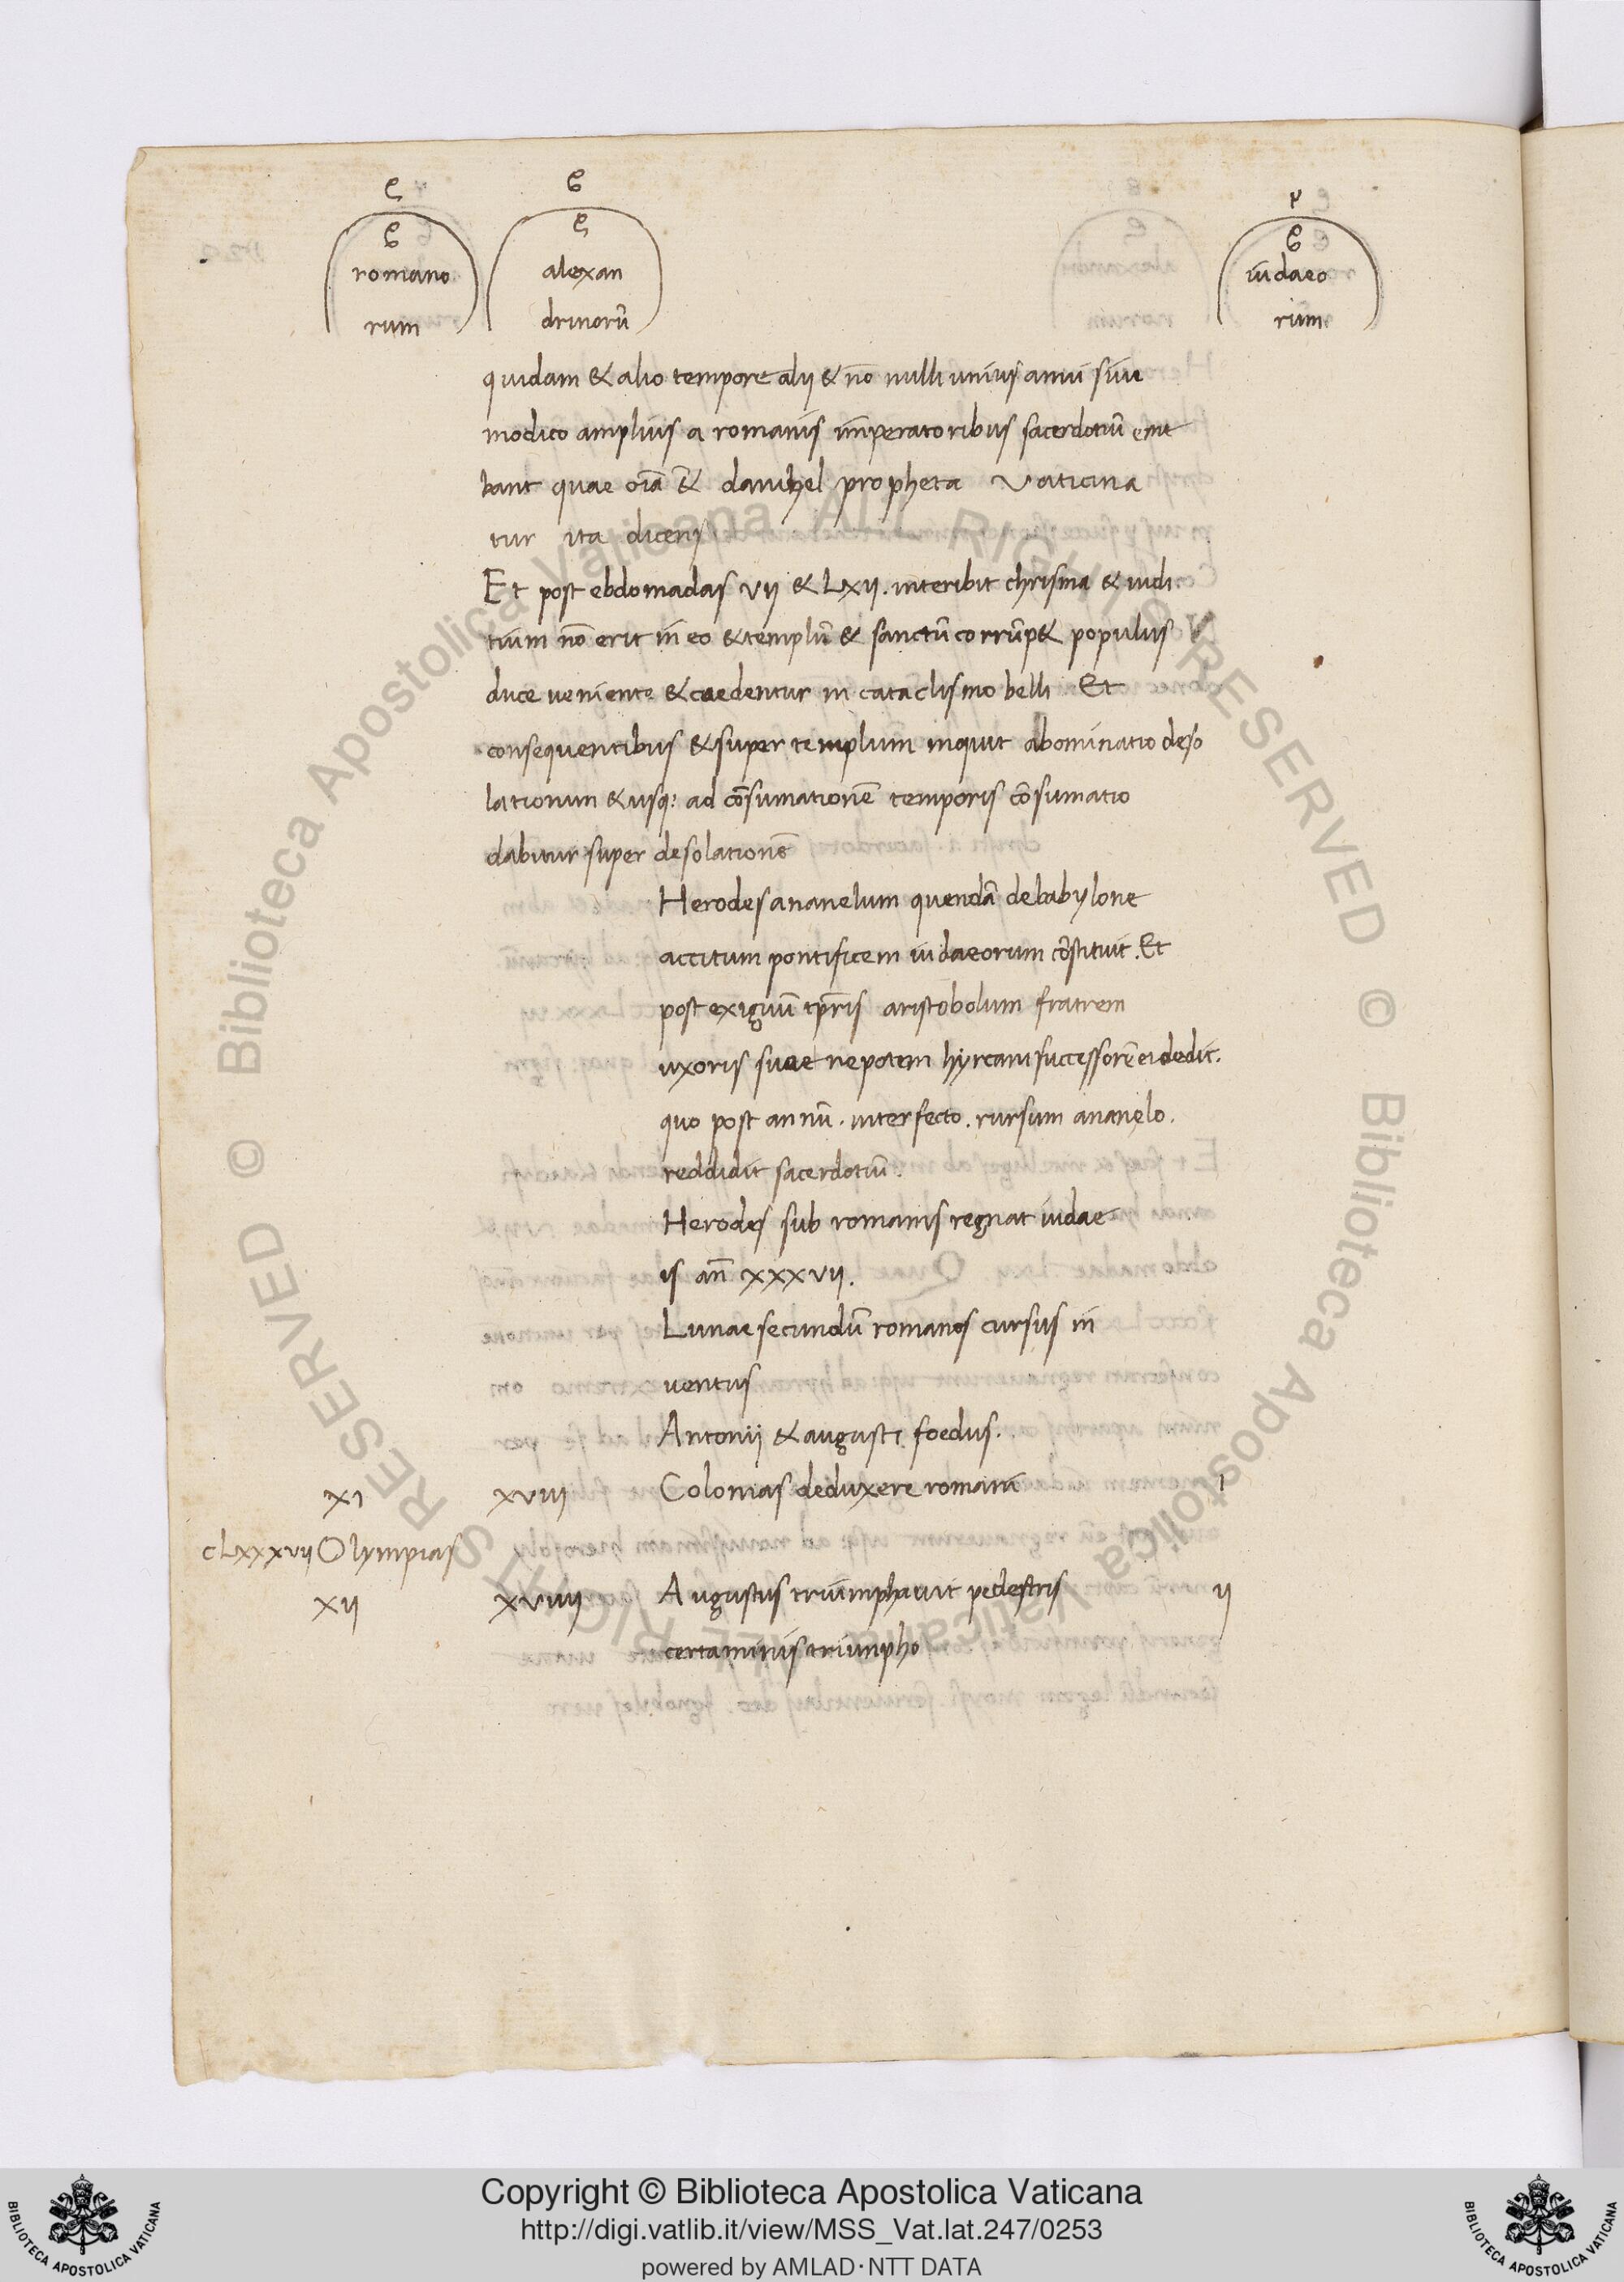 romano
rum
alexan
drinorū
iudaeo
rum
quidam & alio tempore alij & nō nulli unius anni siue
modico amplius a romanis imperatoribus sacerdotiū eme
bant quae oīa & danihel propheta Vaticina
tur ita dicens
Et post ebdomadas vij & Lxij. interibit chrisma & iudi
tium nō erit in eo & templū & sanctū corrūp& populus
duce veniente & caedentur in cataclismo belli Et
consequentibus & super templum inquit abominatio deso
lationum & usq: ad cōsumationē temporis cōsumatio
dabitur super desolationē
Herodes ananelum quendā de babylone
accitum pontificem iudaeorum cōstituit. Et
post exiguū tp̄ris aristobolum fratrem
uxoris suae nepotem hyrcani successorē ei dedit.
quo post annū. interfecto. rursum ananelo.
reddidit sacerdotiū.
Herodes sub romanis regnat iudae
is an̄ xxxvij.
Lunae secundū romanos cursus in
uentus
Antonij & augusti foedus.
xi xviij Colonias deduxere romani i
cLxxxvij Olympias
xij xviiij Augustus triumphauit pedestris ij
certaminis triumpho
Copyright © Biblioteca Apostolica Vaticana
http://digi.vatlib.it/view/MSS_Vat.lat.247/0253
powered by AMLAD·NTT DATA
BIBLIOTECA APOSTOLICA VATICANA
BIBLIOTECA APOSTOLICA VATICANA
© Biblioteca Apostolica Vaticana ALL RIGHTS RESERVED © Biblioteca Apostolica Vaticana ALL RIGHTS RESERVED